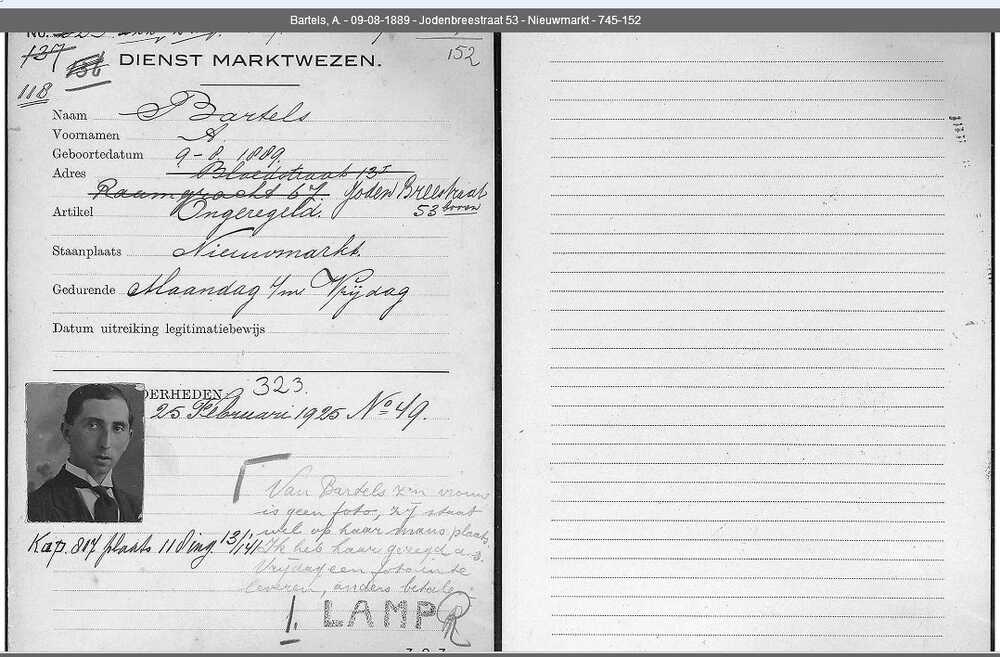 Bartels, A. - 09-08-1889 - Jodenbreestraat 53 - Nieuwmarkt - 745-152
No.
137 136 DIENST MARKTWEZEN. 152
118
Naam Bartels
Voornamen A.
Geboortedatum 9-8. 1889.
Adres Bloedstraat 13I
Raamgracht 67. Joden Breestraat
53 boven
Artikel Ongeregeld.
Staanplaats Nieuwmarkt.
Gedurende Maandag t/m Vrijdag
Datum uitreiking legitimatiebewijs
DERHEDEN 323.
25 Februari 1925 No 49.
Van Bartels z'n vrouw
is geen foto, zij staat
wel op haar mans plaats.
Ik heb haar gezegd a.s.
Vrijdag een foto in te
leveren, anders
Kap. 817 plaats 11 Ding. 13/1 '41
1. LAMP R